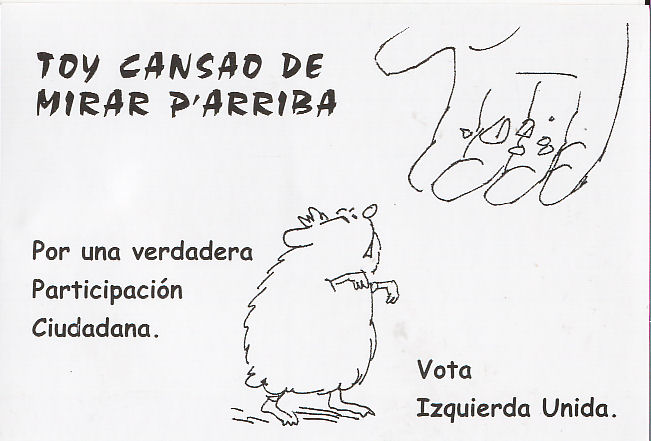 TOY CANSAO DE
MIRAR P'ARRIBA
Por una verdadera
Participación
Ciudadana.
Vota
Izquierda Unida.